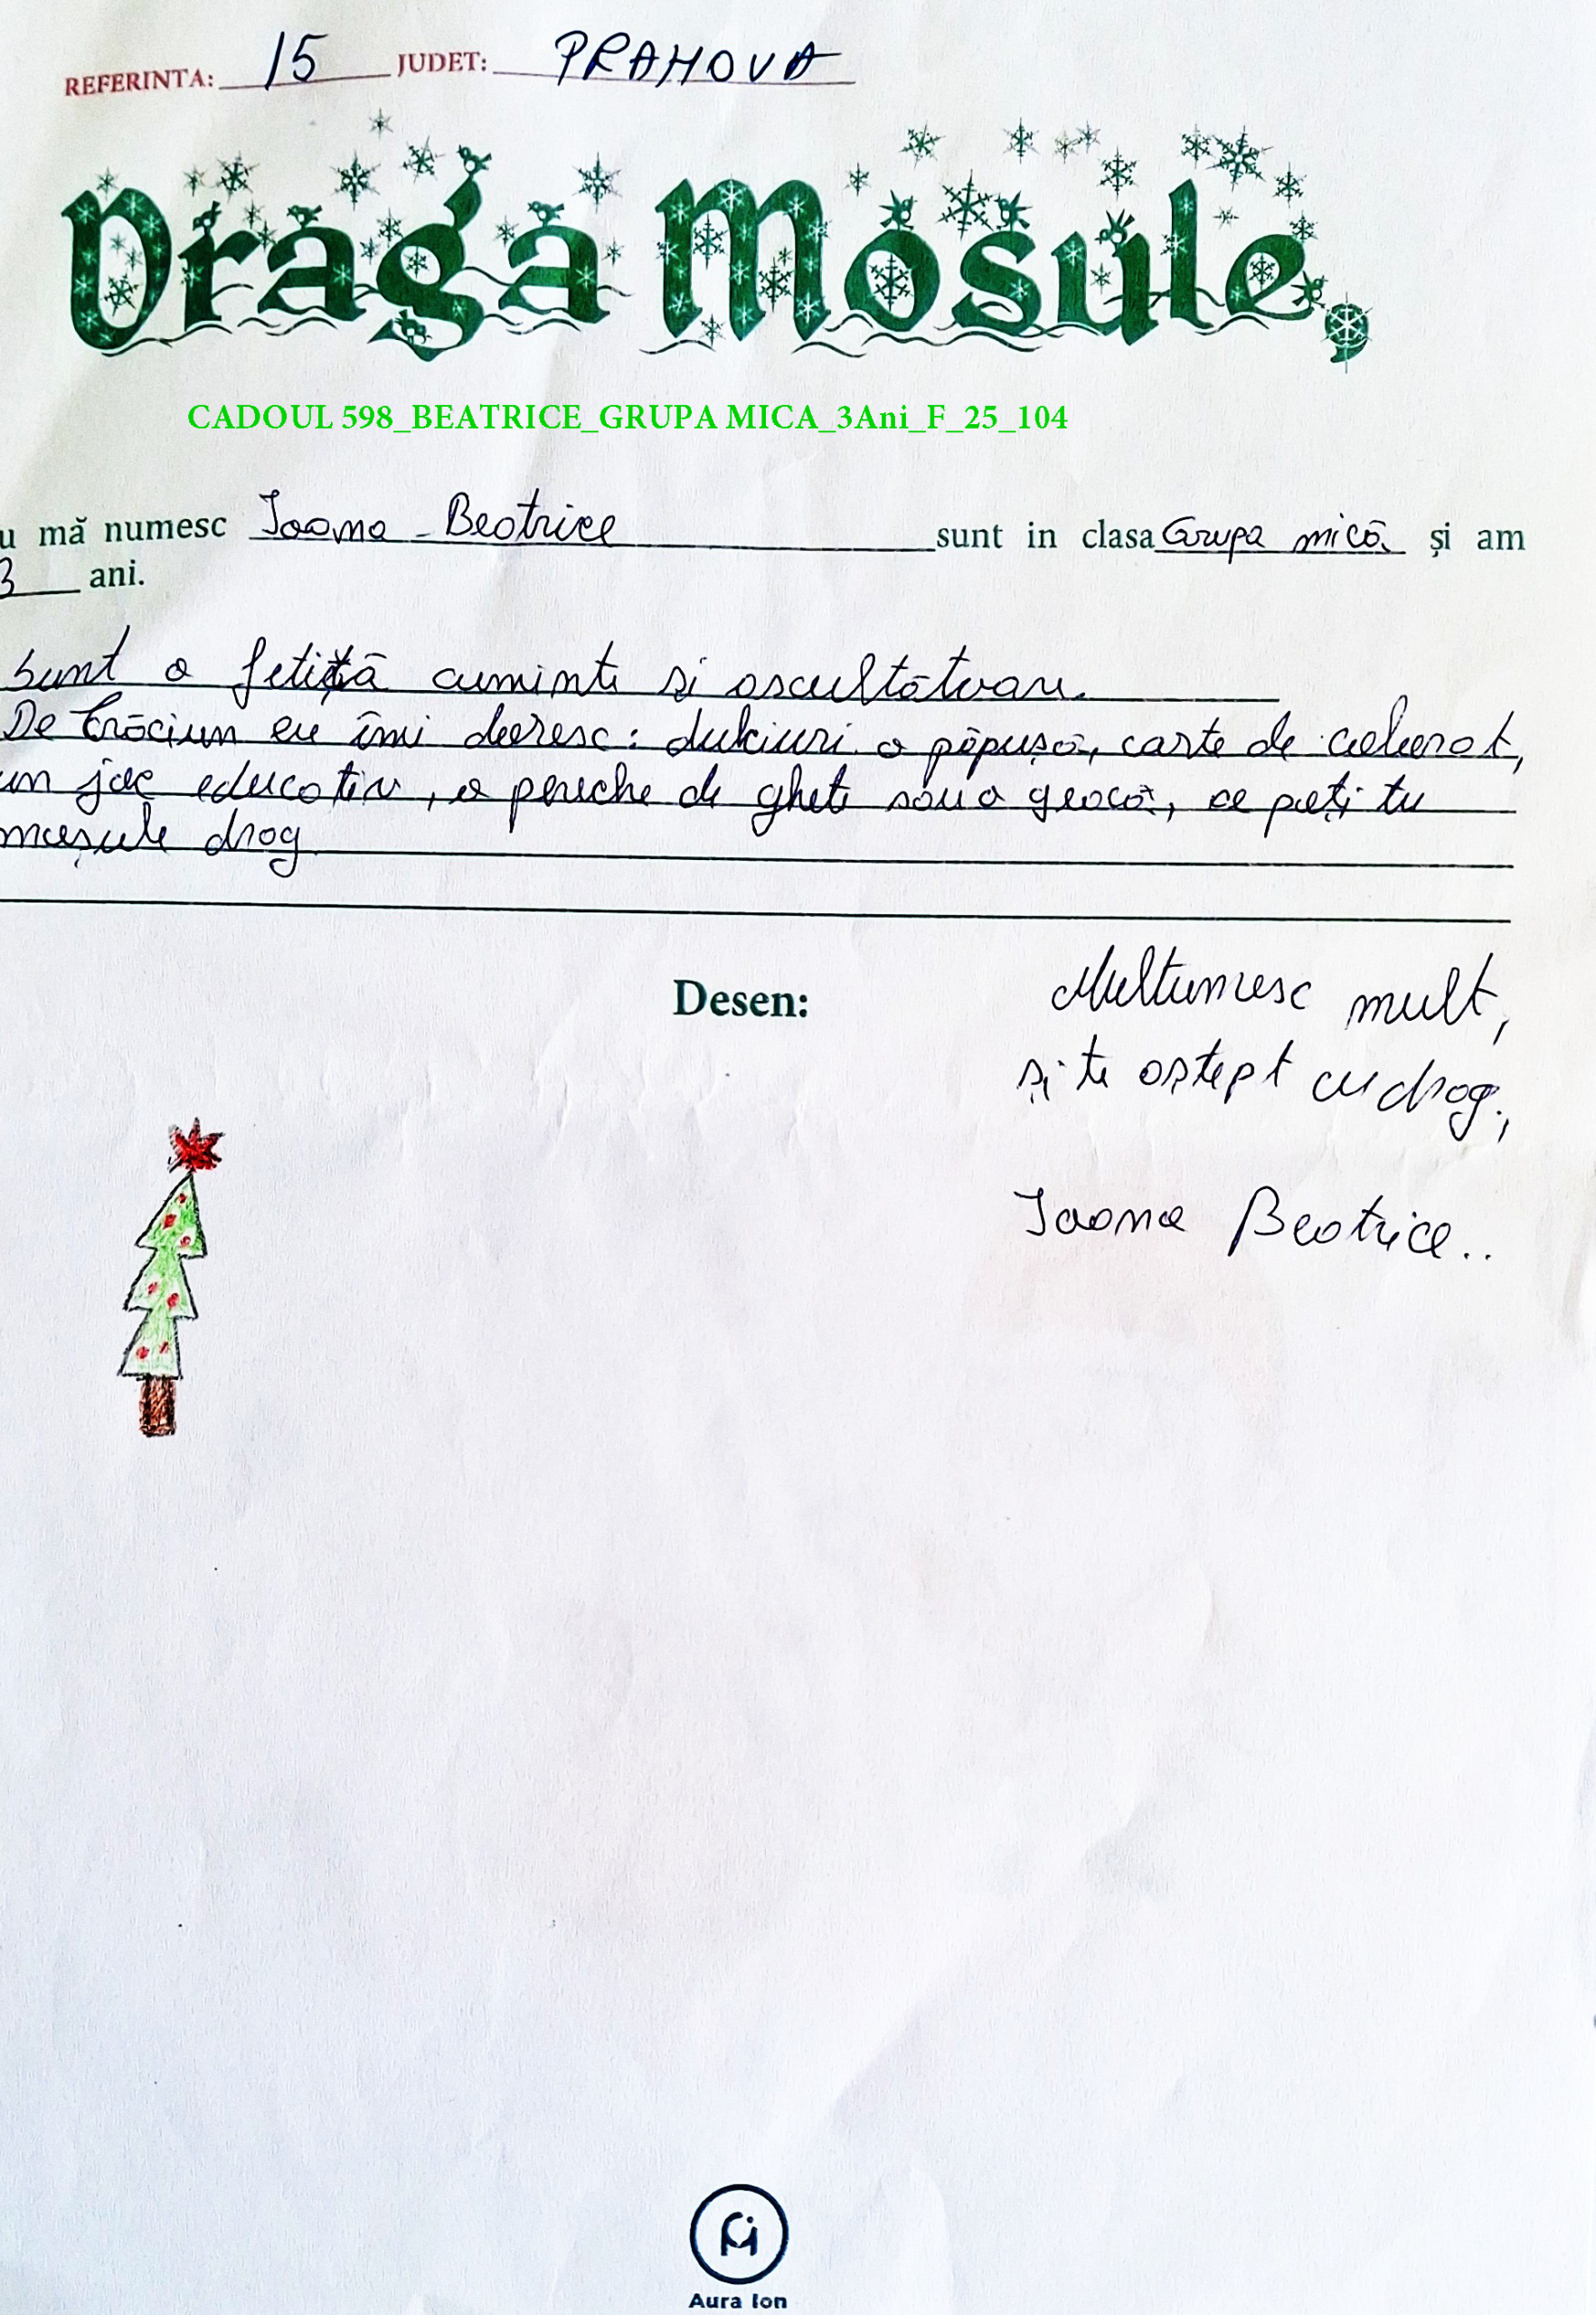 REFERINTA: 15 JUDET: PRAHOVA
Draga Mosule,
CADOUL 598_BEATRICE_GRUPA MICA_3Ani_F_25_104
u mă numesc Ioana - Beatrice sunt in clasa Grupa mică și am
3 ani.
Sunt o fetiță cuminte și ascultătoare.
De Crăciun eu îmi doresc: dulciuri o păpușă, carte de colorat,
un joc educativ, o pereche de ghete sau o geacă, ce poți tu
moșule drag
Desen:
Multumesc mult,
și te aștept cu drag,
Ioana Beatrice..
Aura Ion